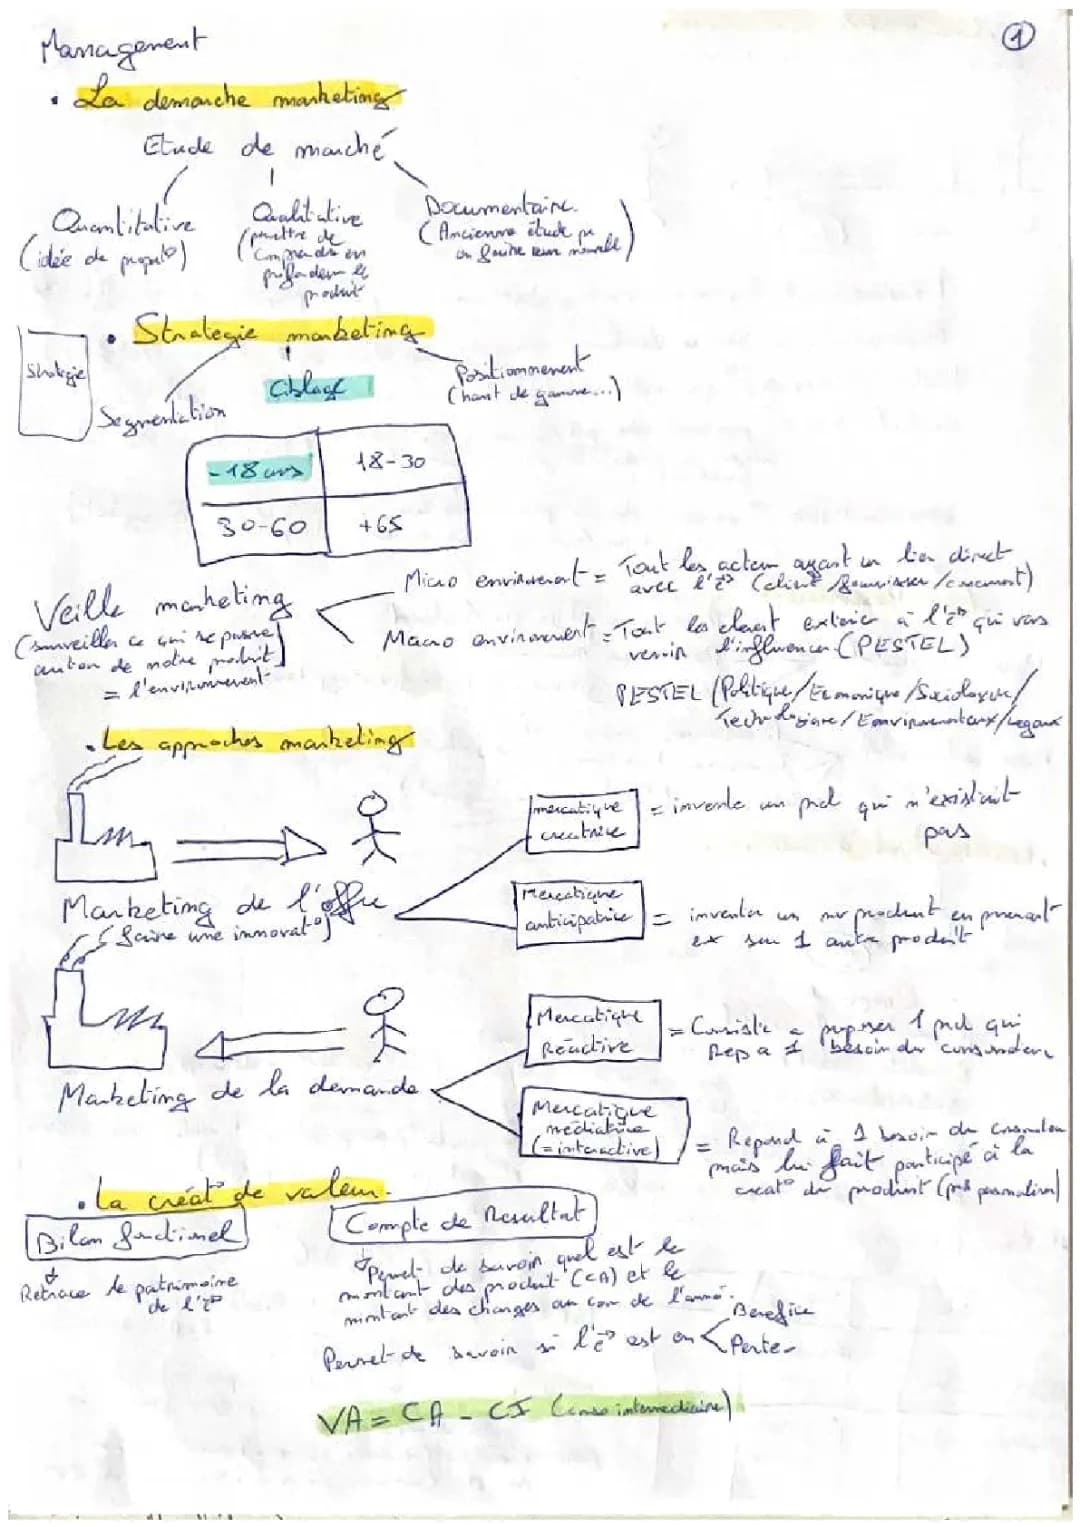 Management
1
• La demarche marketing
Etude de marché
Quantitative
(idée de
Qualitative
(
produit
Documentaire.
(Ancienne étude
• Strategie marketing
Strategie
Segmentation
Ciblage
Positionnement
(haut de gamme...)
-18 ans
18-30
30-60
+65
Veille marketing
(surveiller ce qui se passe
autour de notre produit)
= l'environnement
Micro environement = Tout les acteur ayant un lien direct
avec l'e
Macro environement = Tout les element exterieur à l'e qui vas
venir l'influencer (PESTEL)
PESTEL (Politique/Economique/Sociologique/
Technologique/Environnementaux/Legaux
• Les approches marketing
mercatique
creatrice
= invente un pdt qui n'existait
pas
Marketing de l'offre
(faire une innovat°)
Mercatique
anticipatrice
= inventer un produit en prenant
ex sur 1 autre produit
Mercatique
Réactive
= Consiste a proposer 1 pdt qui
Rep a 1 besoin du
Marketing de la demande
Mercatique
mediatrice
(= interactive)
= Repond à 1 besoin du
mais lui fait participé à la
creat° du produit
• La créat° de valeur.
Bilan fonctionel
Retrace le patrimoine
de l'e
Compte de Resultat
Permet de savoir quel est le
montant des produit (CA) et le
montant des charges au cour de l'anné.
Permet de savoir si l'e est en
Benefice
Perte
VA = CA - CI (conso intermediaire)